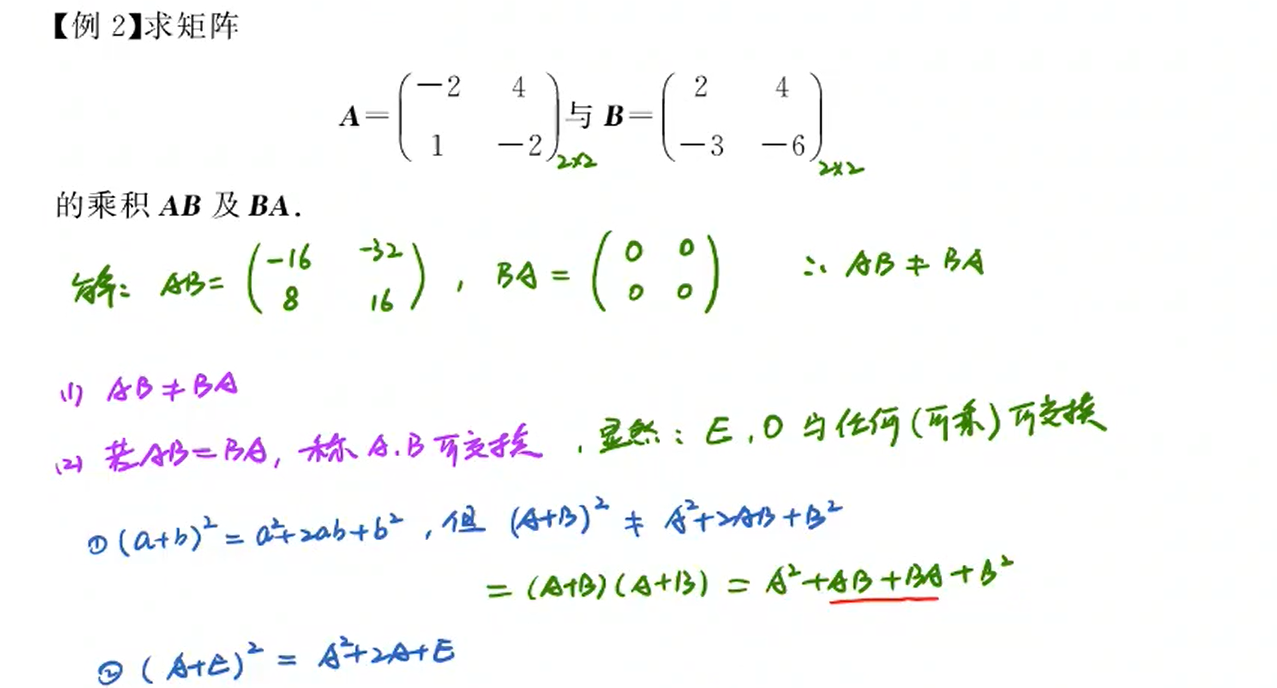 【例 2】求矩阵
A=(-2 4
1 -2)2×2 与 B=(2 4
-3 -6)2×2
的乘积 AB 及 BA.
解: AB=(-16 -32
8 16), BA=(0 0
0 0) ∴ AB≠BA
(1) AB≠BA
(2) 若AB=BA, 称A.B可交换, 显然: E,O与任何(可乘)可交换
①(a+b)²=a²+2ab+b², 但 (A+B)²≠A²+2AB+B²
=(A+B)(A+B)=A²+AB+BA+B²
②(A+E)²=A²+2A+E